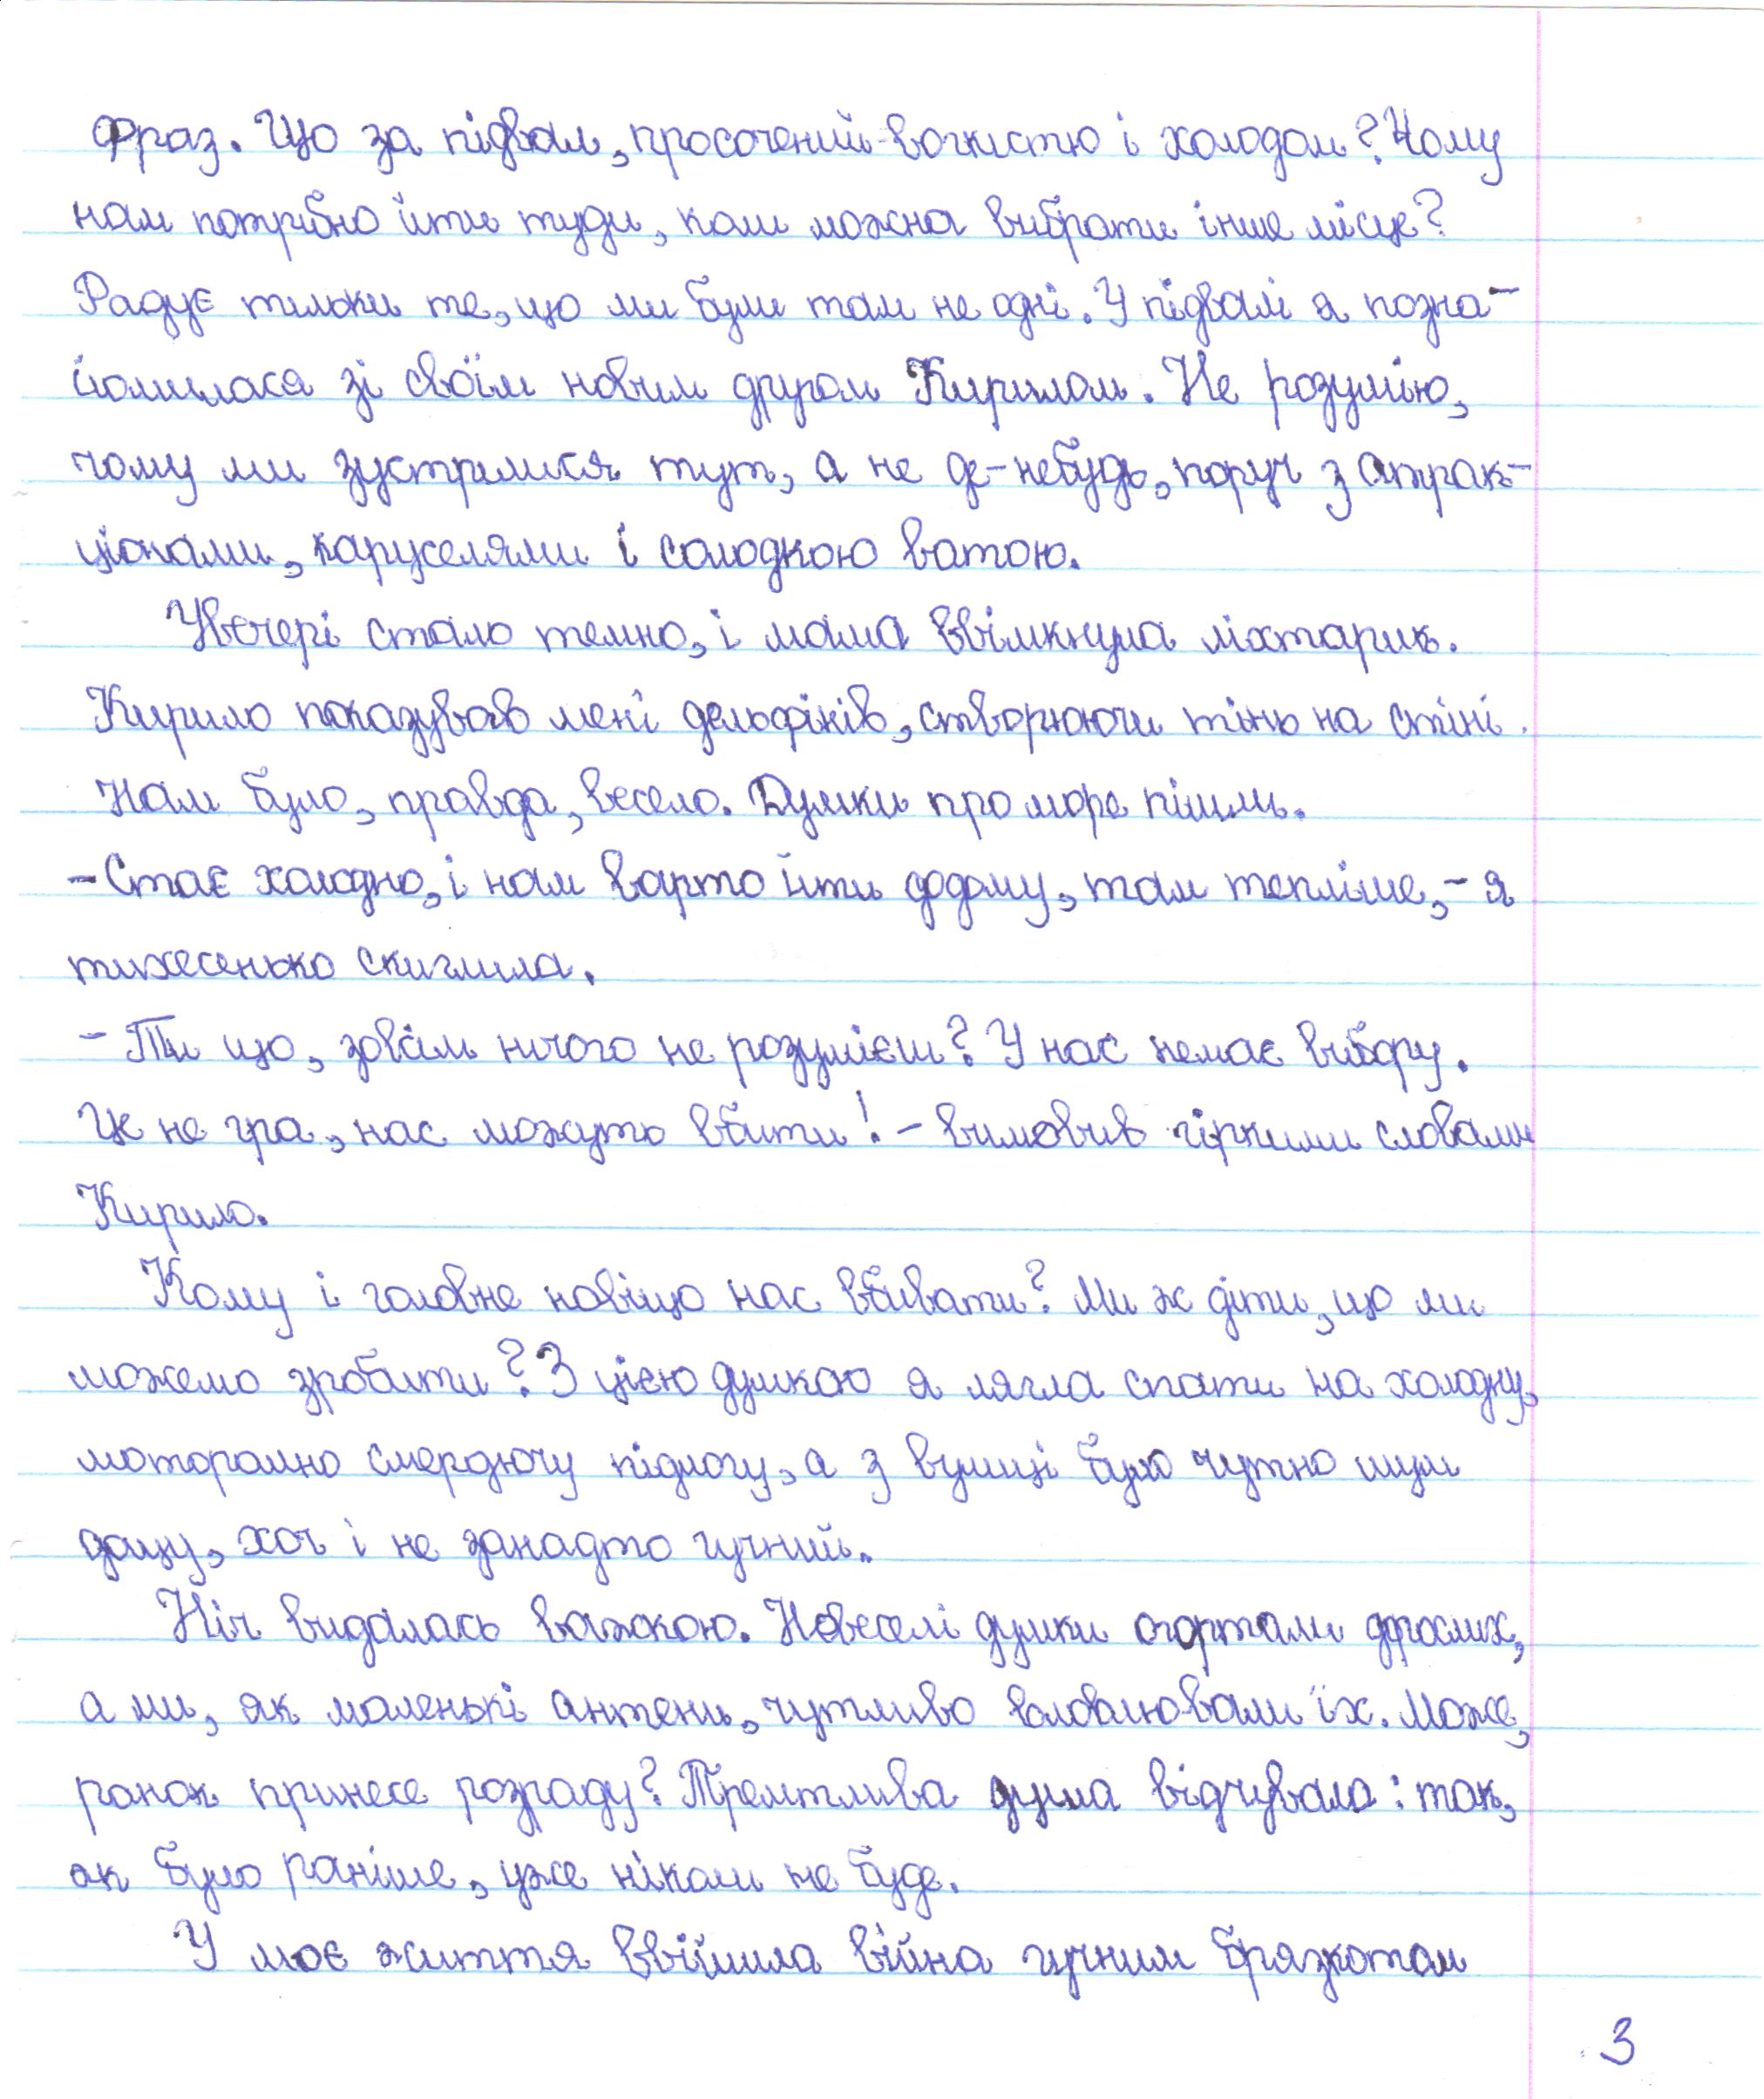 фраз. Що за підвал, просочений вогкістю і холодом? Чому
нам потрібно йти туди, коли можна вибрати інше місце?
Радує тільки те, що ми були там не одні. У підвалі я позна-
йомилася зі своїм новим другом Кирилом. Не розумію,
чому ми зустрілися тут, а не де-небудь, поруч з атрак-
ціонами, каруселями і солодкою ватою.
Увечері стало темно, і мама ввімкнула ліхтарик.
Кирило показував мені дельфінів, створюючи тінь на стіні.
Нам було, правда, весело. Думки про море пішли.
- Стає холодно, і нам варто йти додому, там тепліше, - я
тихесенько скиглила.
- Ти що, зовсім нічого не розумієш? У нас немає вибору.
Це не гра, нас можуть вбити! - вимовив гіркими словами
Кирило.
Кому і головне навіщо нас вбивати? Ми ж діти, що ми
можемо зробити? З цією думкою я лягла спати на холодну,
моторошно смердючу підлогу, а з вулиці було чутно шум
дощу, хоч і не занадто гучний.
Ніч видалась важкою. Невеселі думки огортали дорослих,
а ми, як маленькі антени, чутливо вловлювали їх. Може,
ранок принесе розраду? Тремтлива душа відчувала: так,
як було раніше, уже ніколи не буде.
У моє життя ввійшла війна гучним брязкотом
3